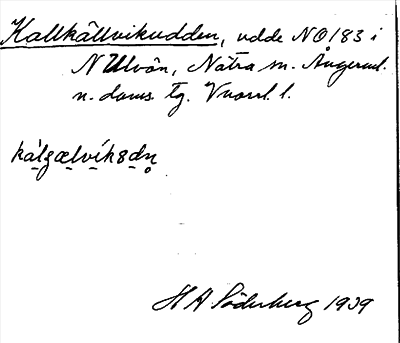 Kallkällvikudden, udde NO183 i
N Ulvön, Nätra sn. Ångerml.
n. doms. tg. Vnorrl. l.
H A Söderberg 1939